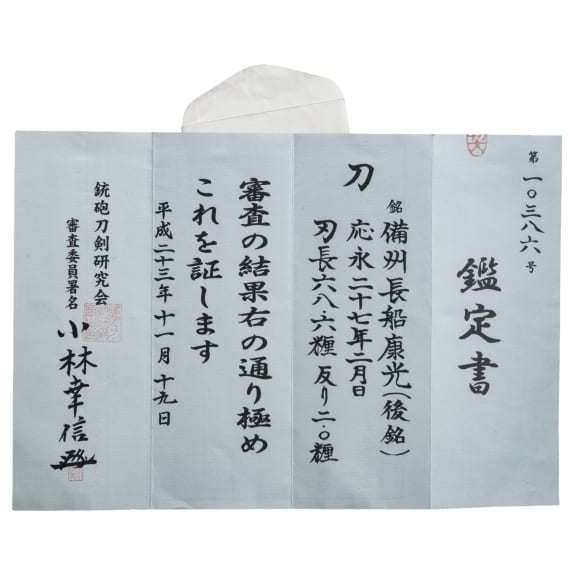 第一〇三八六号
鑑定書
刀
銘 備州長船康光(後銘)
応永二十七年二月日
刃長六八・六糎 反り二・〇糎
審査の結果右の通り極め
これを証します
平成二十三年十一月十九日
銃砲刀剣研究会
審査委員署名
小林幸信